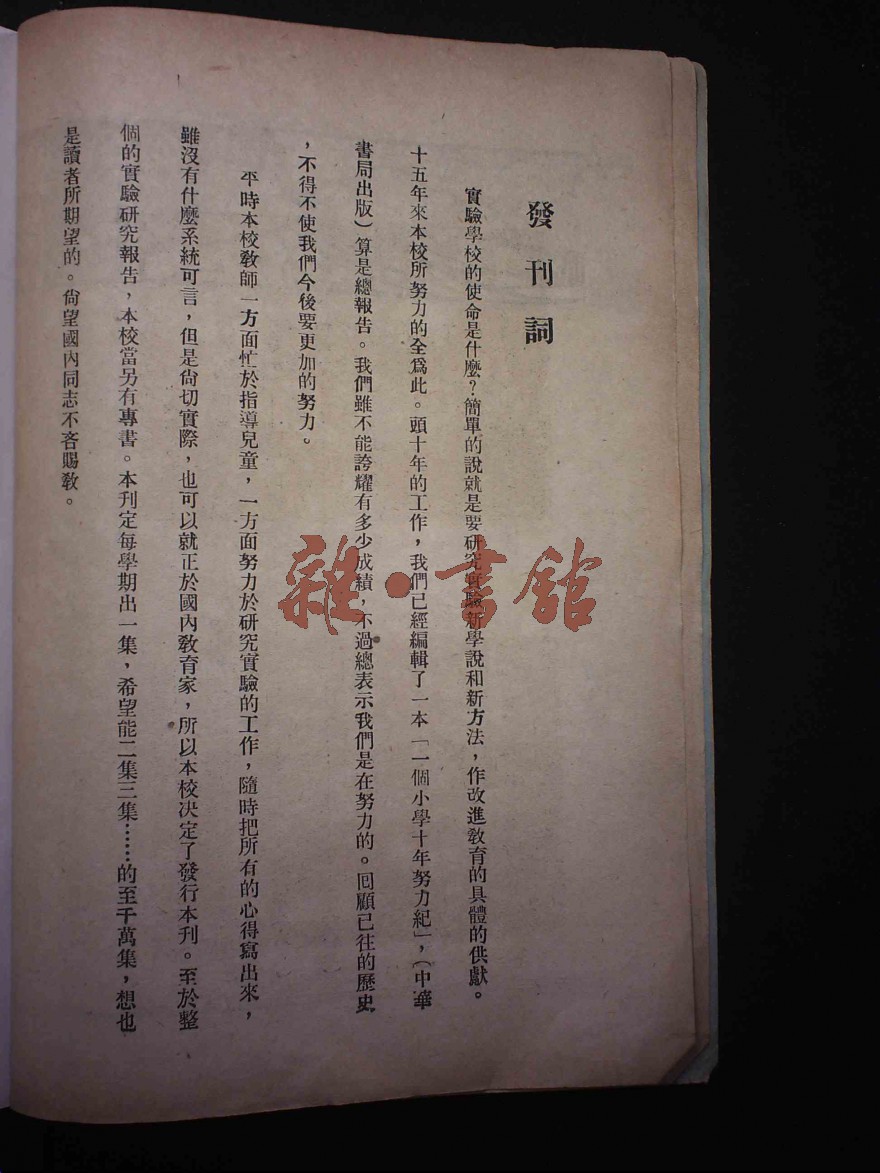 發刊詞
實驗學校的使命是什麼？簡單的說就是要研究實驗新學說和新方法，作改進教育的具體的供獻。
十五年來本校所努力的全爲此。頭十年的工作，我們已經編輯了一本「一個小學十年努力紀」，（中華
書局出版）算是總報告。我們雖不能誇耀有多少成績，不過總表示我們是在努力的。囘顧已往的歷史
，不得不使我們今後要更加的努力。
平時本校敎師一方面忙於指導兒童，一方面努力於研究實驗的工作，隨時把所有的心得寫出來，
雖沒有什麼系統可言，但是尙切實際，也可以就正於國內敎育家，所以本校決定了發行本刊。至於整
個的實驗研究報告，本校當另有專書。本刊定每學期出一集，希望能二集三集……的至千萬集，想也
是讀者所期望的。尙望國內同志不吝賜敎。
雜·書館